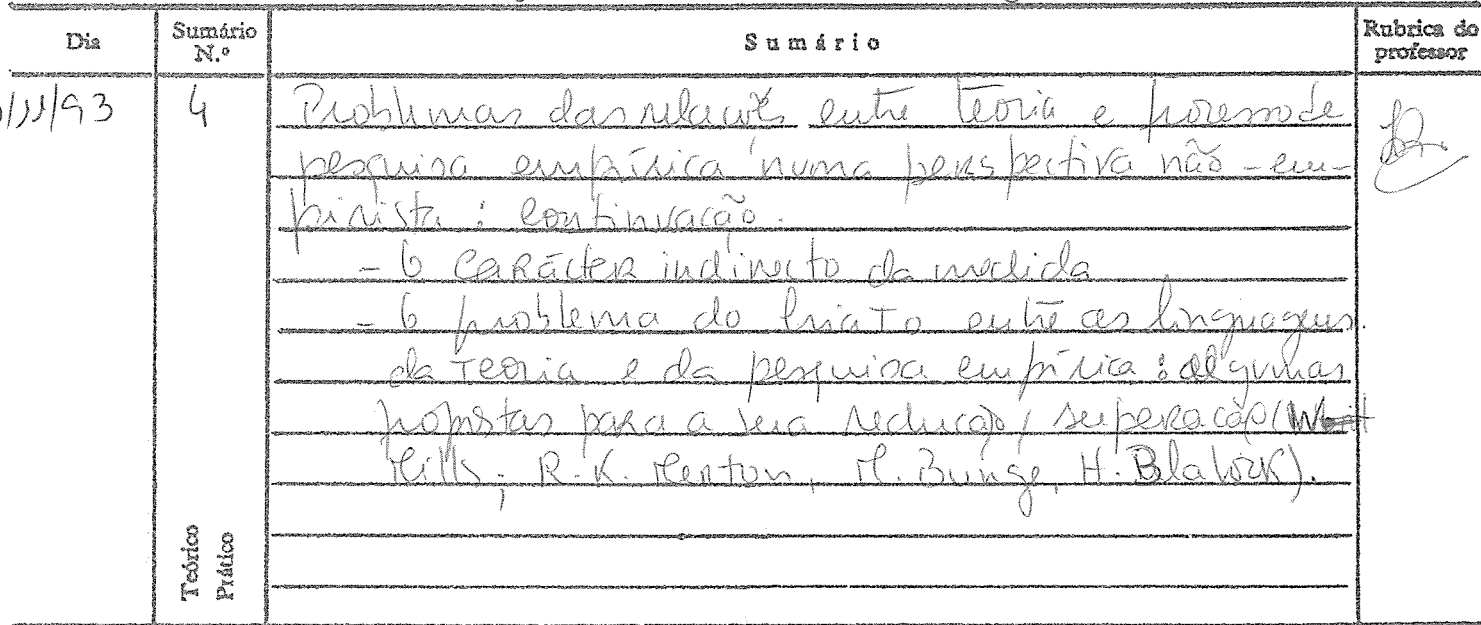 Dia
Sumário N.º
Sumário
Rubrica do professor
/11/93
4
Problemas das relações entre teoria e processo de
pesquisa empírica numa perspectiva não-em-
pirista: continuação.
- O carácter indirecto da medida
- O problema do hiato entre as linguagens
da teoria e da pesquisa empírica: algumas
propostas para a sua redução/superação (
Mills, R.K. Merton, M. Bunge, H. Blalock).
Teórico
Prático